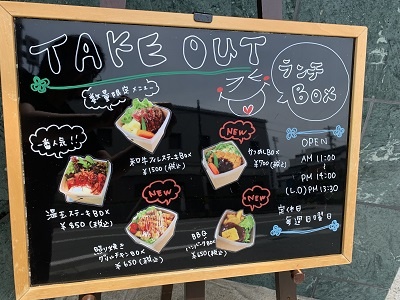 TAKE OUT
数量限定メニュー
ランチ
BOX
一番人気!!
和牛フィレステーキBOX
¥1500(税込)
NEW
¥700(税込)
温玉ステーキBOX
¥850(税込)
NEW
照り焼き
グリルチキンBOX
¥650(税込)
NEW
BBQ
ハンバーグBOX
¥650(税込)
OPEN
AM 11:00
PM 14:00
(L.O) PM 13:30
定休日
毎週日曜日